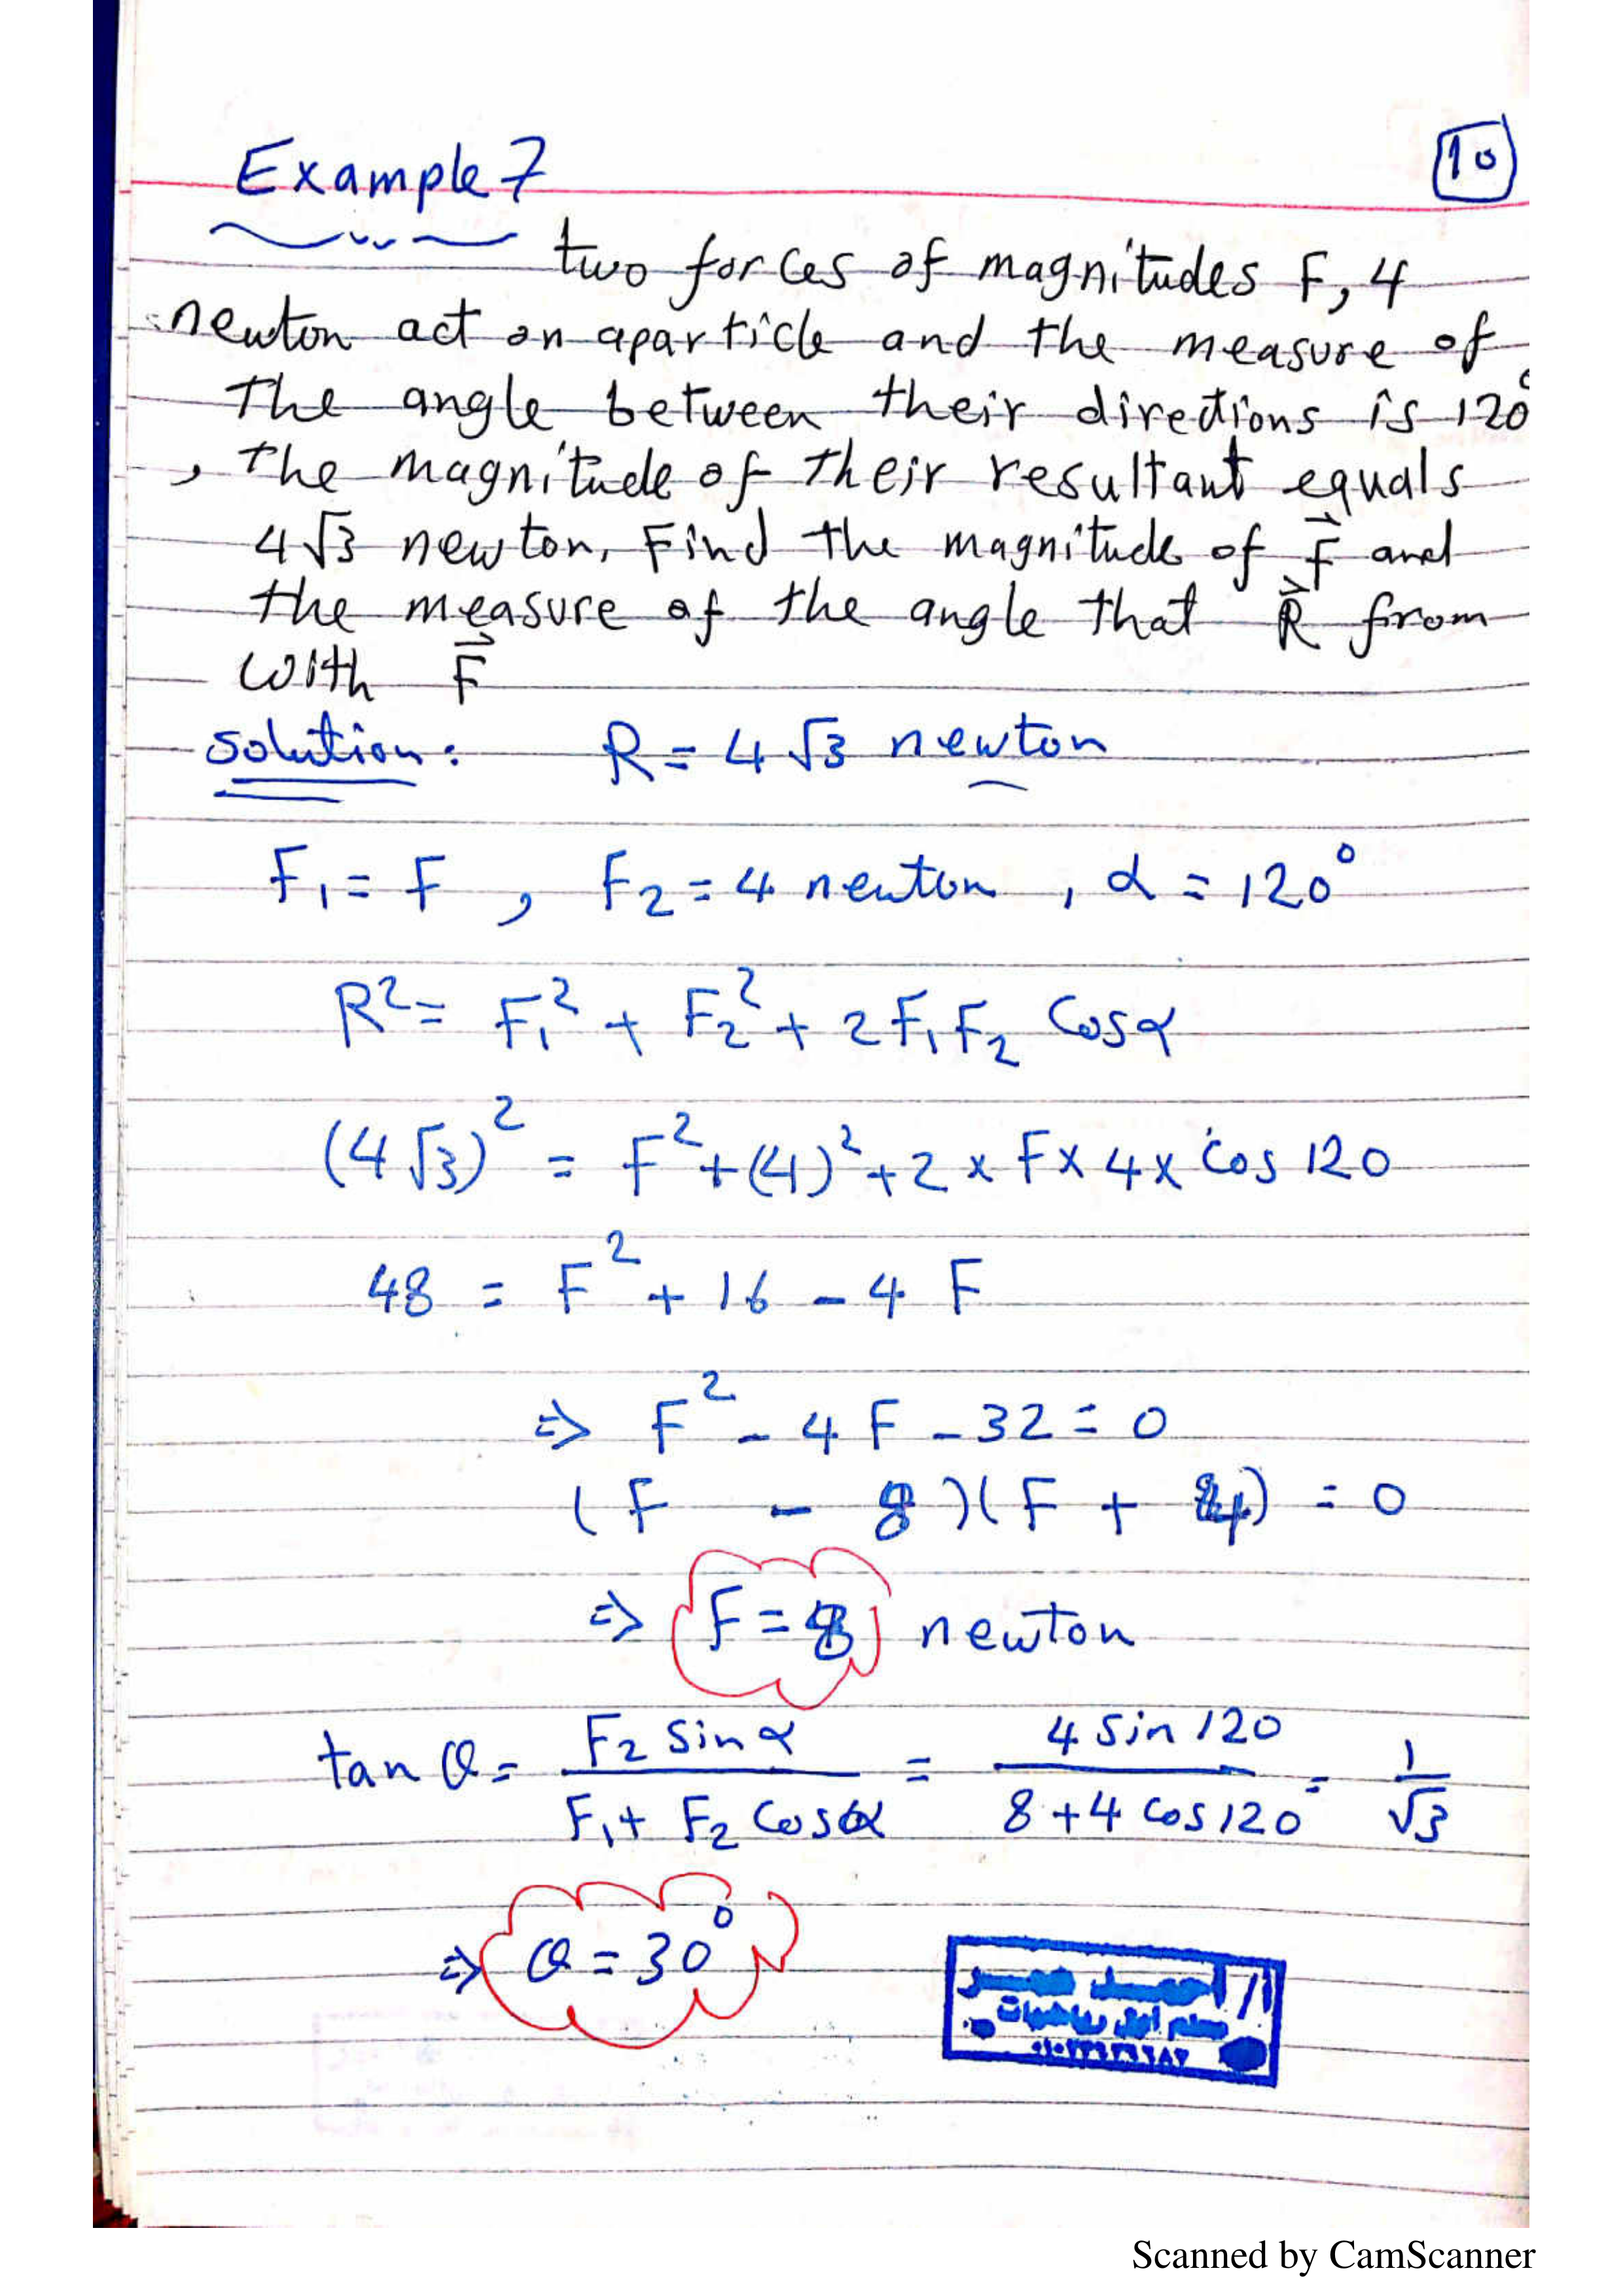 Example 7
10
two forces of magnitudes F, 4
newton act on aparticle and the measure of
The angle between their directions is 120°
, the magnitude of their resultant equals
4√3 newton, Find the magnitude of F⃗ and
the measure of the angle that R⃗ from
with F⃗
solution: R = 4√3 newton
F₁ = F , F₂ = 4 newton , α = 120°
R² = F₁² + F₂² + 2F₁F₂ Cosα
(4√3)² = F² + (4)² + 2 × F × 4 × Cos 120
48 = F² + 16 - 4 F
⇒ F² - 4F - 32 = 0
(F - 8)(F + 4) = 0
⇒ F = 8 newton
tan θ = F₂ sinα / F₁ + F₂ Cosα = 4 sin 120 / 8 + 4 cos 120 = 1/√3
⇒ θ = 30°
أ/ احمد عمر
معلم اول رياضيات
Scanned by CamScanner